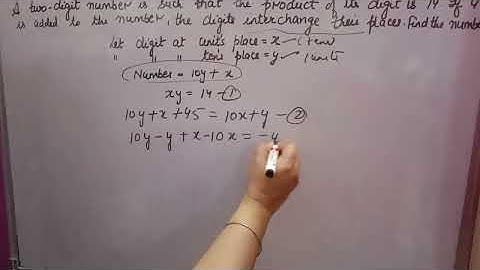 A two-digit number is such that the product of its digit is 14 If 4
is added to the number, the digits interchange their places. Find the number
let digit at unit's place = x
" " " ten's place = y
Number = 10y + x
xy = 14 - ①
10y + x + 45 = 10x + y - ②
10y - y + x - 10x = - 4